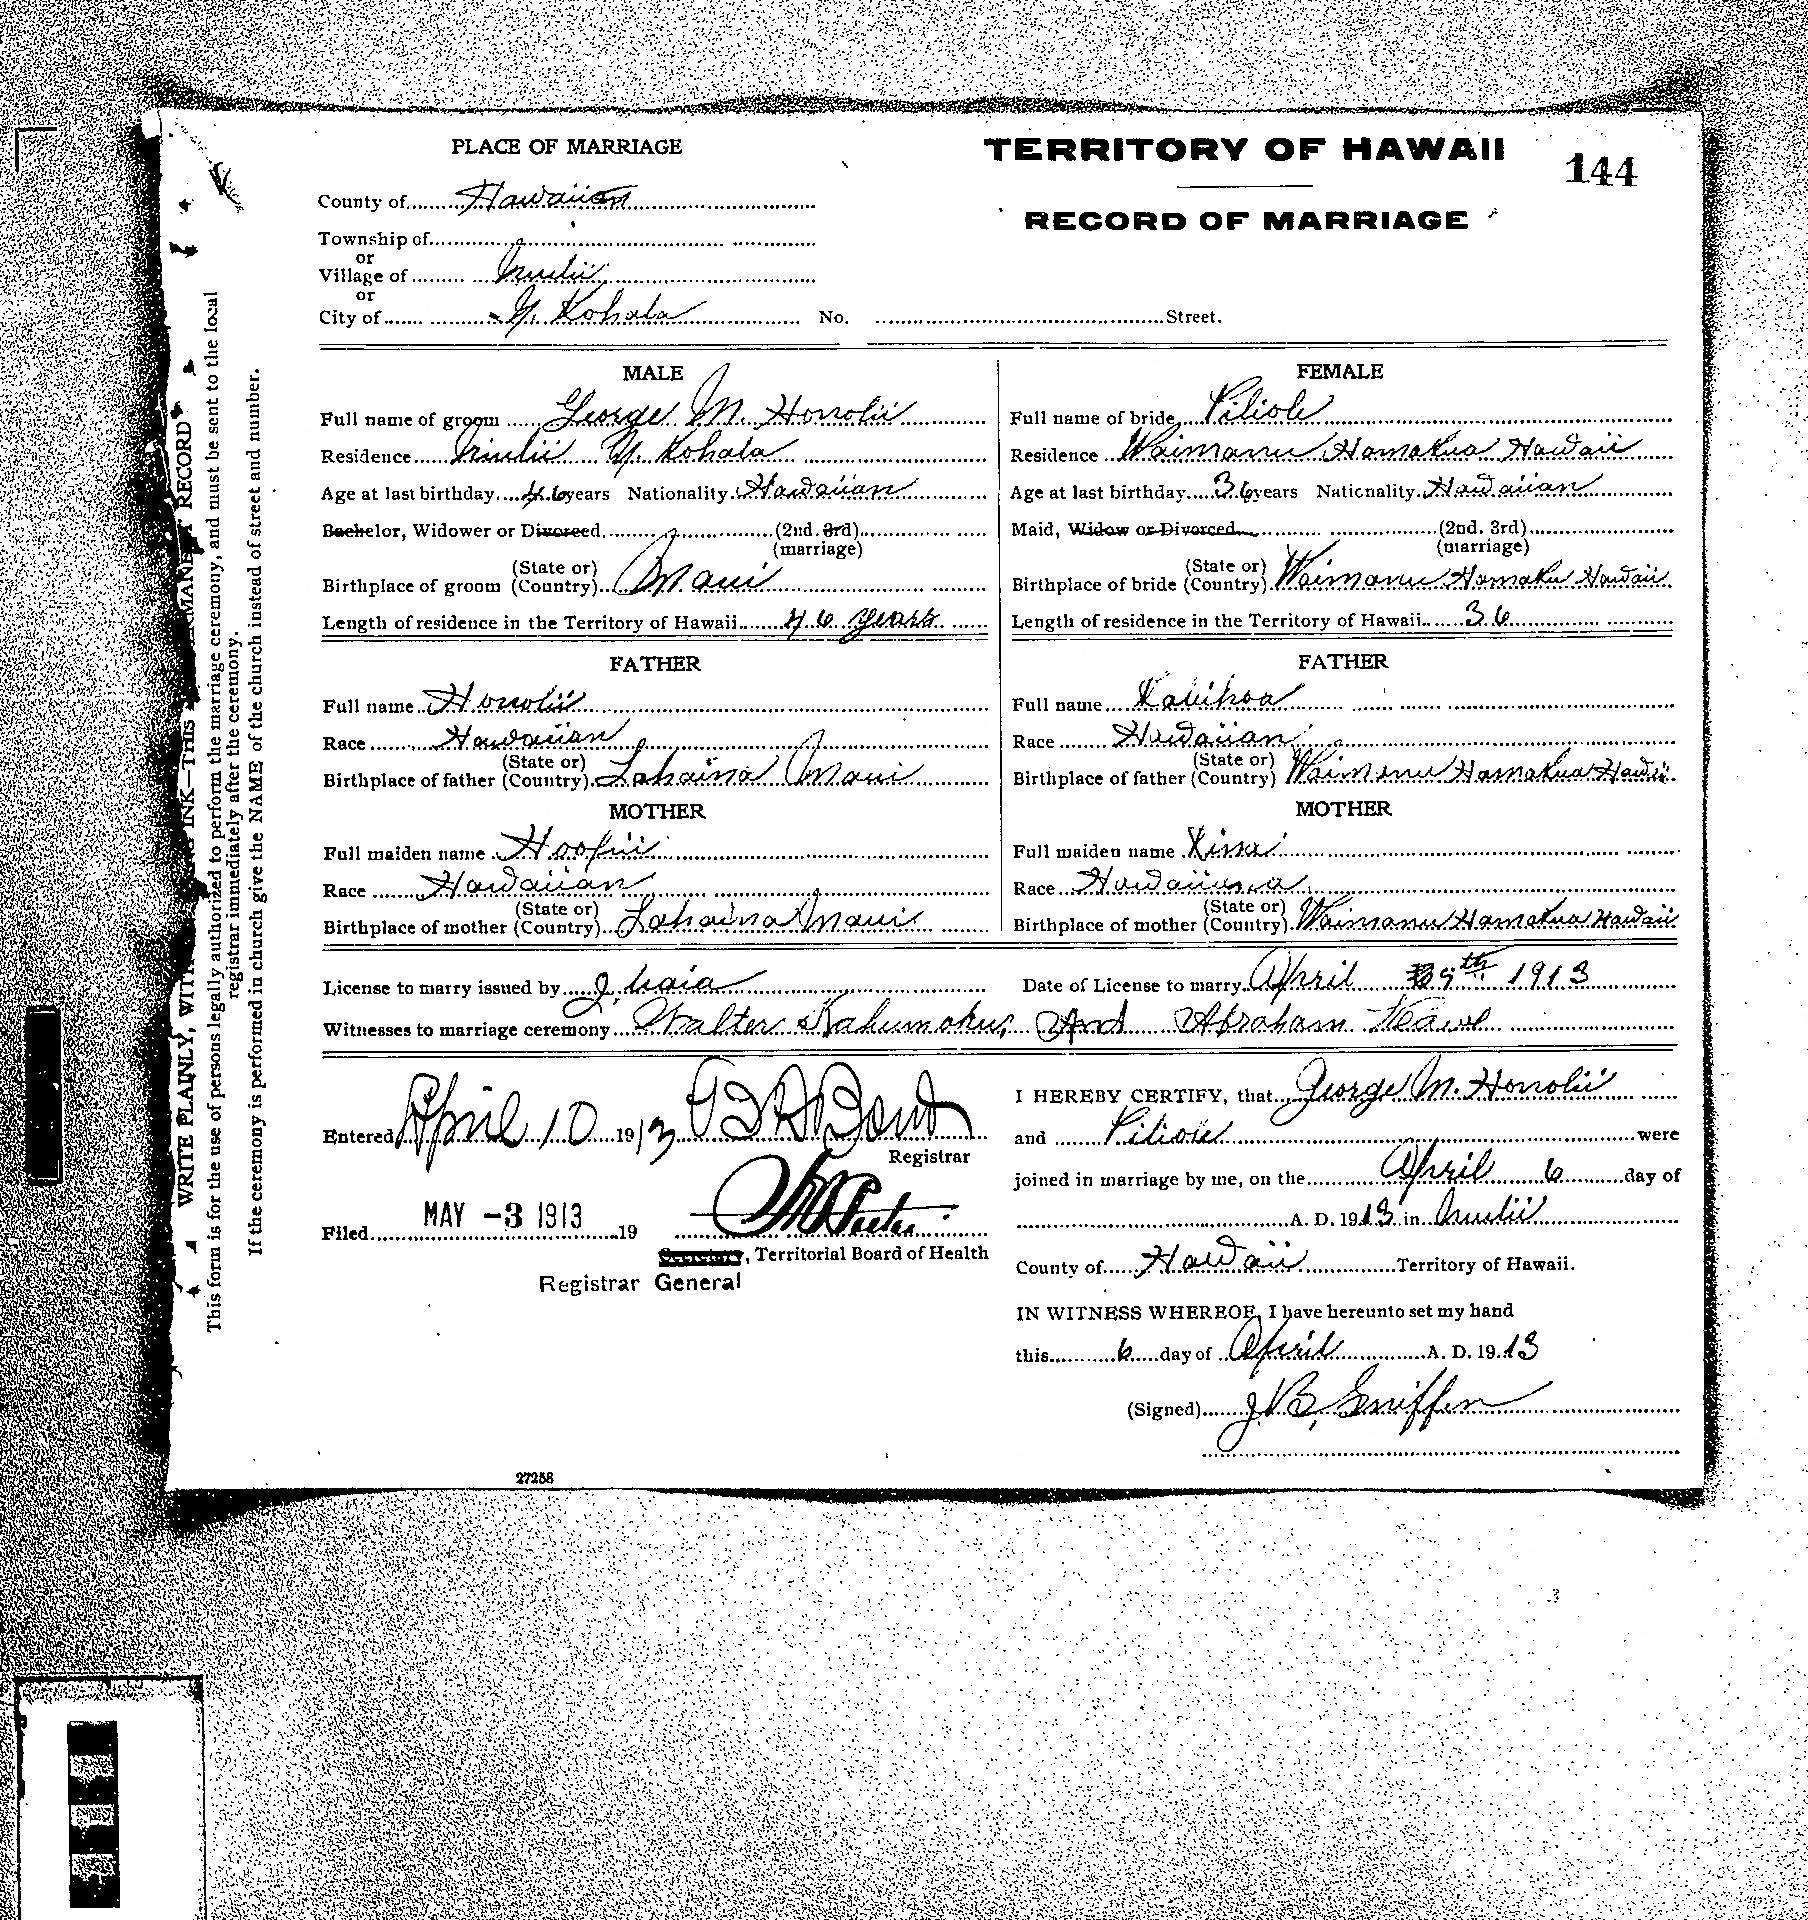 PLACE OF MARRIAGE
TERRITORY OF HAWAII
144
RECORD OF MARRIAGE
County of Hawaiian
Township of
or
Village of Niulii
or
City of N. Kohala No. Street.
MALE
Full name of groom George M. Honolii
Residence Niulii N. Kohala
Age at last birthday 46 years Nationality Hawaiian
Bachelor, Widower or Divorced (2nd. 3rd)
(marriage)
(State or)
Birthplace of groom (Country) Maui
Length of residence in the Territory of Hawaii 46 years
FATHER
Full name Honolii
Race Hawaiian
(State or)
Birthplace of father (Country) Lahaina Maui
MOTHER
Full maiden name Hoopii
Race Hawaiian
(State or)
Birthplace of mother (Country) Lahaina Maui
FEMALE
Full name of bride Piliole
Residence Waimanu Hamakua Hawaii
Age at last birthday 36 years Nationality Hawaiian
Maid, Widow or Divorced (2nd. 3rd)
(marriage)
(State or)
Birthplace of bride (Country) Waimanu Hamaku Hawaii
Length of residence in the Territory of Hawaii 36
FATHER
Full name
Race Hawaiian
(State or)
Birthplace of father (Country) Waimanu Hamakua Hawaii
MOTHER
Full maiden name
Race
(State or)
Birthplace of mother (Country) Waimanu Hamakua Hawaii
License to marry issued by Date of License to marry April 1913
Witnesses to marriage ceremony Walter Kahumoku, And Abraham
Entered April 10 1913 Bond
Registrar
Filed MAY -3 1913 19
, Territorial Board of Health
Registrar General
I HEREBY CERTIFY, that George M. Honolii
and Piliole were
joined in marriage by me, on the April 6 day of
A. D. 1913 in Niulii
County of Hawaii Territory of Hawaii.
IN WITNESS WHEREOF, I have hereunto set my hand
this 6 day of April A. D. 1913
(Signed) J. B.
27258
WRITE PLAINLY, WITH INK—THIS PERMANENT RECORD
This form is for the use of persons legally authorized to perform the marriage ceremony, and must be sent to the local
registrar immediately after the ceremony.
If the ceremony is performed in church give the NAME of the church instead of street and number.